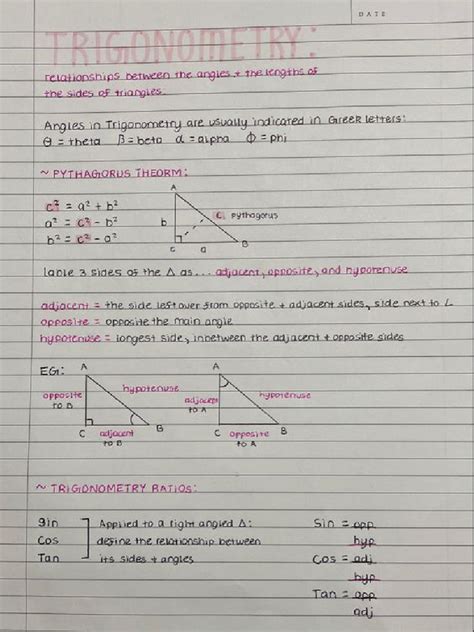 DATE
TRIGONOMETRY:
relationships between the angles + the lengths of
the sides of triangles
Angles in Trigonometry are usually indicated in Greek letters:
θ = theta β = beta α = alpha Φ = phi
~ PYTHAGORUS THEORM:
c² = a² + b²
a² = c² - b²
b² = c² - a²
A
b
c pythagorus
C a B
lable 3 sides of the Δ as... adjacent, opposite, and hypotenuse
adjacent = the side left over from opposite + adjacent sides, side next to ∠
opposite = opposite the main angle
hypotenuse = longest side, inbetween the adjacent + opposite sides
EG:
A
opposite to B
hypotenuse
C adjacent to B B
A
adjacent to A
hypotenuse
C opposite to A B
~ TRIGONOMETRY RATIOS:
Sin
Cos
Tan
Applied to a right angled Δ:
define the relationship between
its sides + angles
Sin = opp
hyp
Cos = adj
hyp
Tan = opp
adj